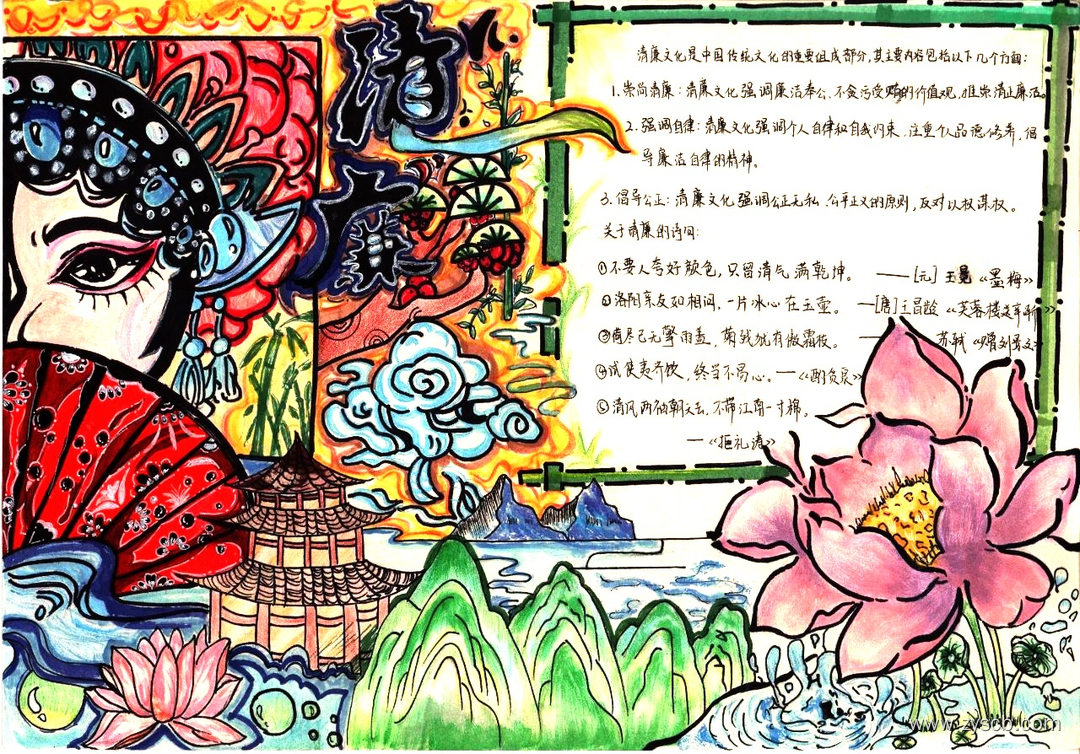 清廉
清廉文化是中国传统文化的重要组成部分，其主要内容包括以下几个方面：
1.崇尚清廉：清廉文化强调廉洁奉公、不贪污受贿的价值观，推崇清正廉洁。
2.强调自律：清廉文化强调个人自律和自我约束，注重个人品德修养，倡
导廉洁自律的精神。
3.倡导公正：清廉文化强调公正无私、公平正义的原则，反对以权谋权。
关于清廉的诗词：
①不要人夸好颜色，只留清气满乾坤。 ——[元]王冕《墨梅》
②洛阳亲友如相问，一片冰心在玉壶。 —[唐]王昌龄《芙蓉楼送辛渐》
③荷尽已无擎雨盖，菊残犹有傲霜枝。 — 苏轼《赠刘景文》
④试使夷齐饮，终当不易心。—《酌贪泉》
⑤清风两袖朝天去，不带江南一寸棉。
—《拒礼诗》
www.zyscb.com